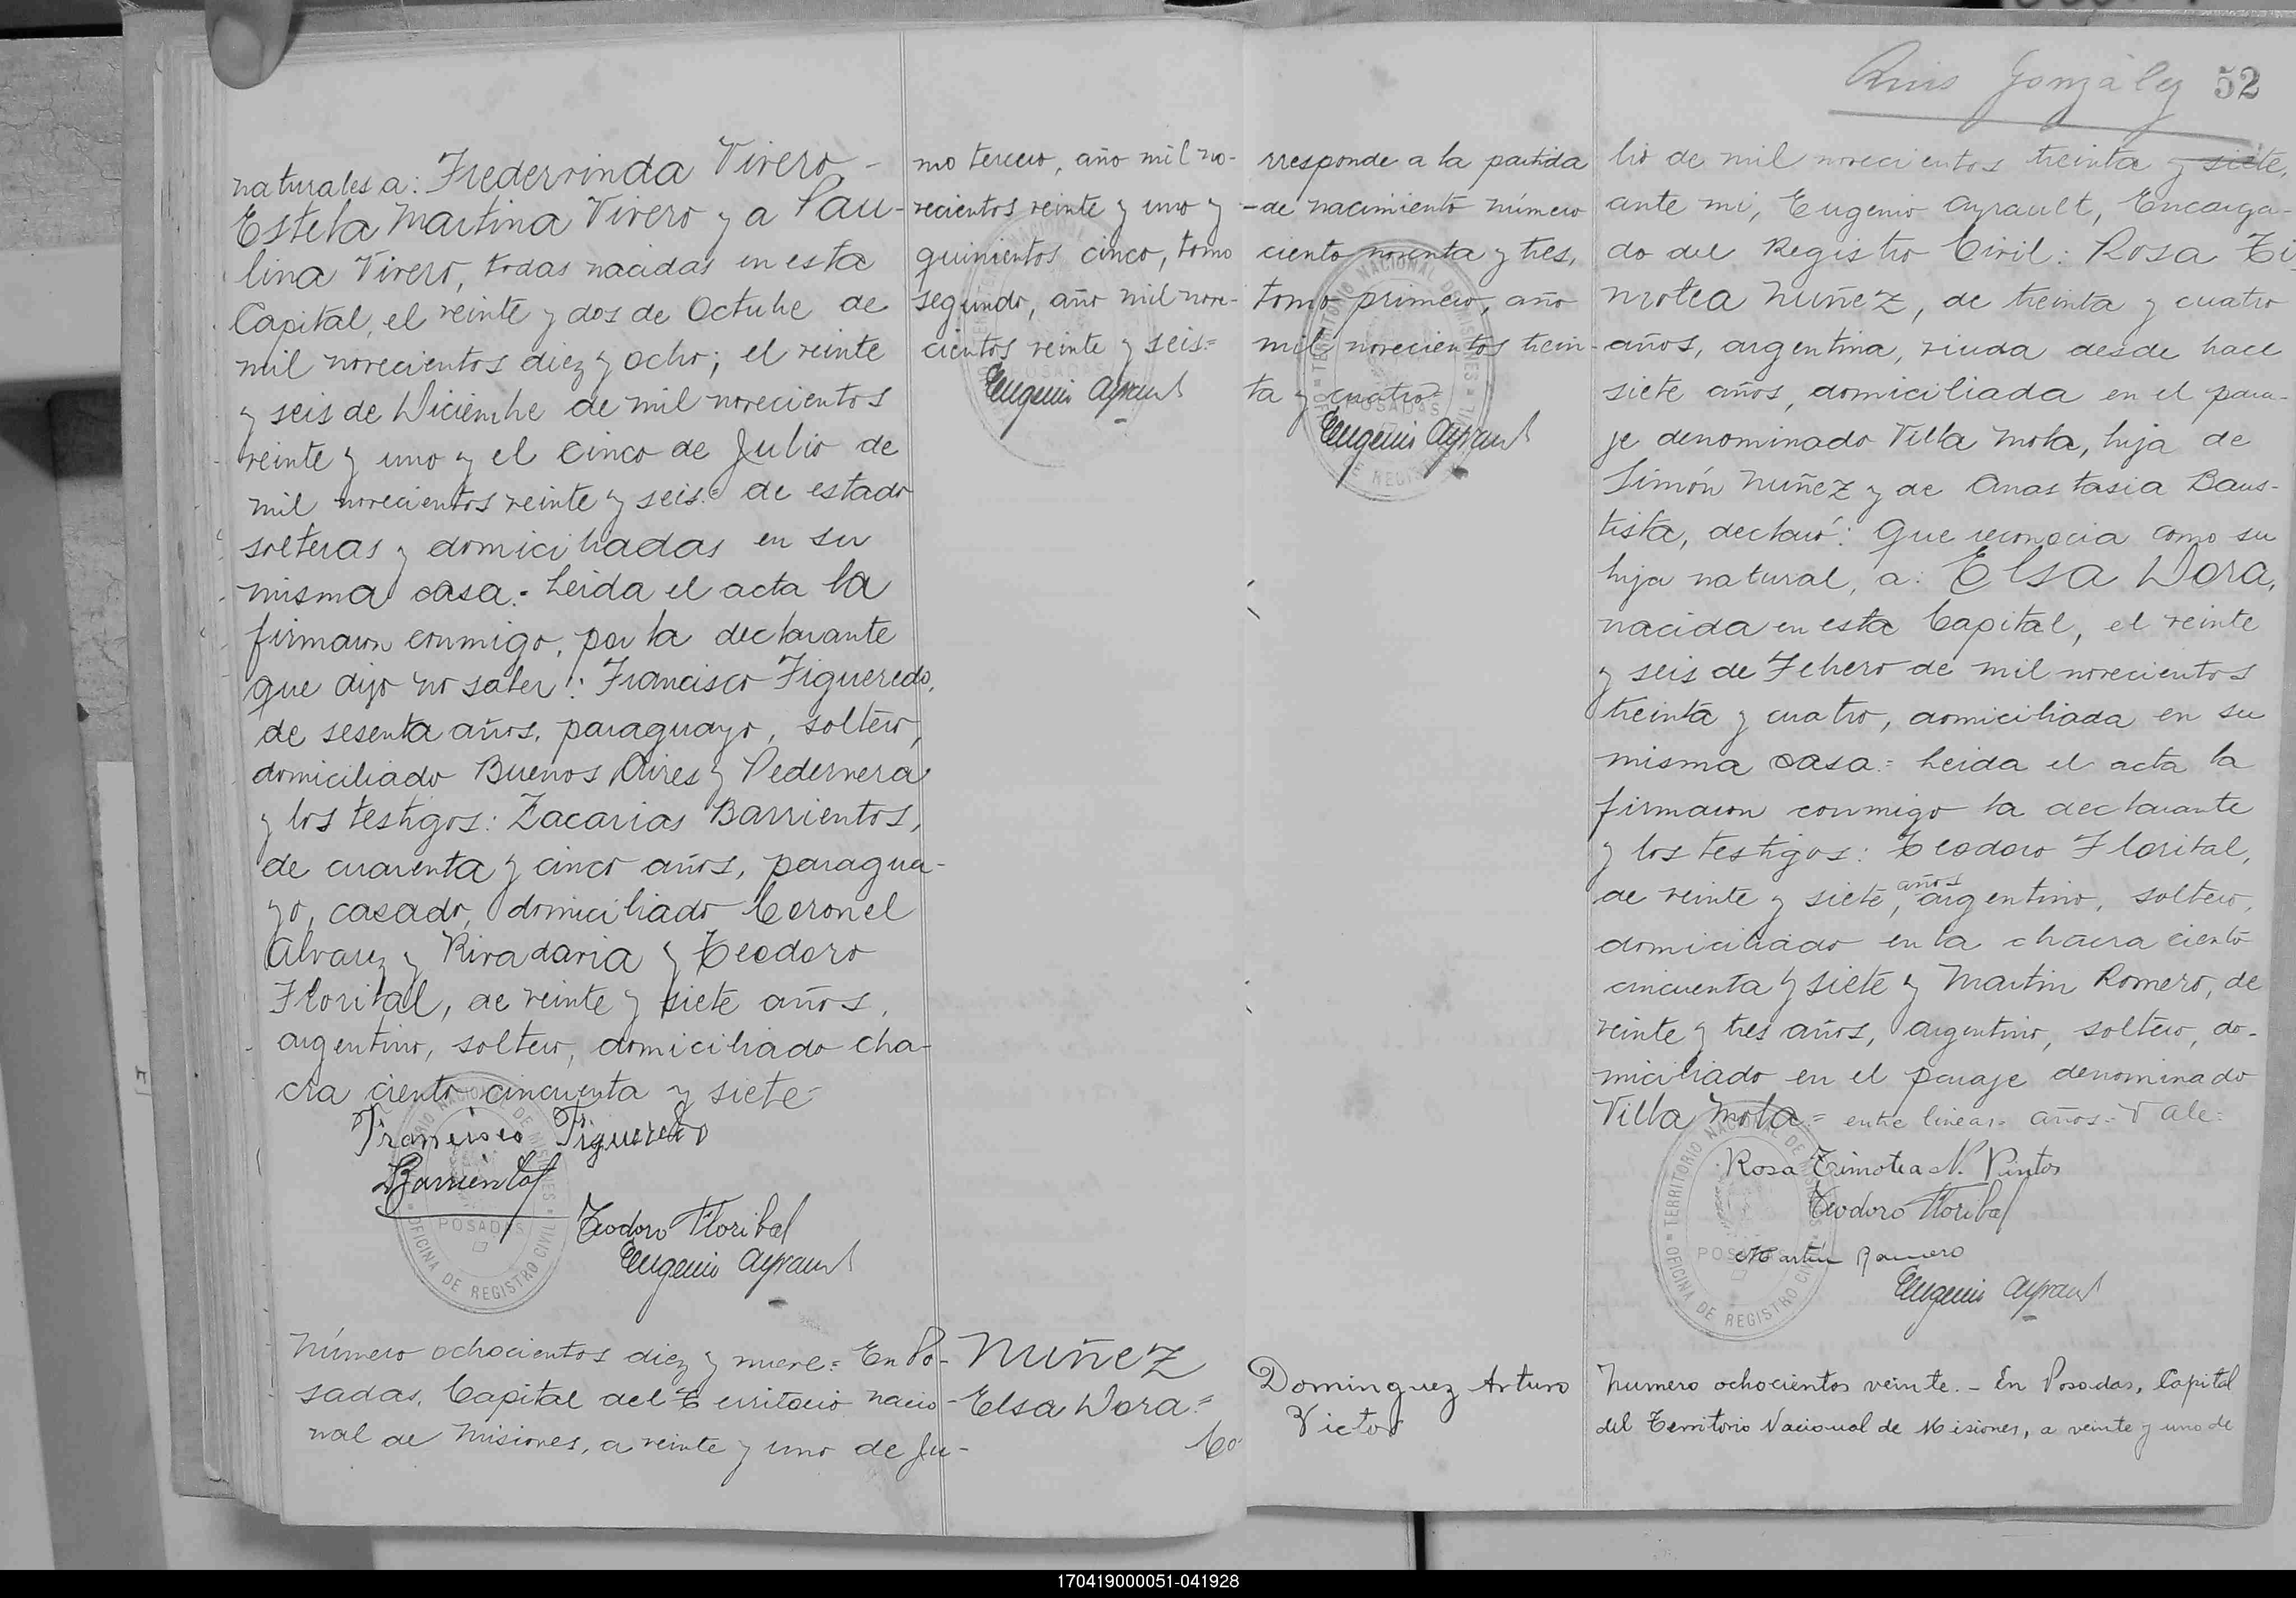 naturales a: Frederrinda Vivero -
Estela Martina Vivero y a Pau-
lina Vivero, todas nacidas en esta
Capital, el veinte y dos de Octubre de
mil novecientos diez y ocho; el veinte
y seis de Diciembre de mil novecientos
veinte y uno y el cinco de Julio de
mil novecientos veinte y seis= de estado
solteras y domiciliadas en su
misma casa.- Leida el acta la
firmaron conmigo, por la declarante
que dijo no saber: Francisco Figueredo,
de sesenta años, paraguayo, soltero,
domiciliado Buenos Aires y Pedernera
y los testigos: Zacarias Barrientos,
de cuarenta y cinco años, paragua-
yo, casado, domiciliado Coronel
Alvarez y Rivadavia y Teodoro
Florital, de veinte y siete años,
argentino, soltero, domiciliado cha-
cra ciento cincuenta y siete=
Francisco Figueredo
ZBarrientos
Teodoro Floribal
Eugenio Ayrault
TERRITORIO NACIONAL DE MISIONES
POSADAS
OFICINA DE REGISTRO CIVIL
Número ochocientos diez y nueve= En Po-
sadas, Capital del Territorio nacio-
nal de Misiones, a veinte y uno de Ju-
mo tercero, año mil no-
vecientos veinte y uno y
quinientos cinco, tomo
segundo, año mil nove-
cientos veinte y seis=
Eugenio Ayrault
POSADAS
Nuñez
Elsa Dora=
Co
rresponde a la partida
-de nacimiento número
ciento noventa y tres,
tomo primero, año
mil novecientos trein-
ta y cuatro=
Eugenio Ayrault
TERRITORIO NACIONAL DE MISIONES
POSADAS
OFICINA DE REGISTRO CIVIL
Dominguez Arturo
Victor
Ruis González 52
lio de mil novecientos treinta y siete,
ante mi, Eugenio Ayrault, Encarga-
do del Registro Civil: Rosa Ti
motea Nuñez, de treinta y cuatro
años, argentina, viuda desde hace
siete años, domiciliada en el para-
je denominado Villa Mola, hija de
Simón Nuñez y de Anastasia Baus-
tista, declaró: Que reconocia como su
hija natural, a: Elsa Dora,
nacida en esta Capital, el veinte
y seis de Febrero de mil novecientos
treinta y cuatro, domiciliada en su
misma casa.= Leida el acta la
firmaron conmigo la declarante
y los testigos: Teodoro Florital,
años
de veinte y siete, argentino, soltero,
domiciliado en la chacra ciento
cincuenta y siete y Martin Romero, de
veinte y tres años, argentino, soltero, do-
miciliado en el paraje denominado
Villa Mola= entre lineas= años= Vale=
Rosa Timotea N. Pintos
Teodoro Floribal
Martin Romero
Eugenio Ayrault
TERRITORIO NACIONAL DE MISIONES
POSADAS
OFICINA DE REGISTRO CIVIL
Numero ochocientos veinte.- En Posadas, Capital
del Territorio Nacional de Misiones, a veinte y uno de
170419000051-041928